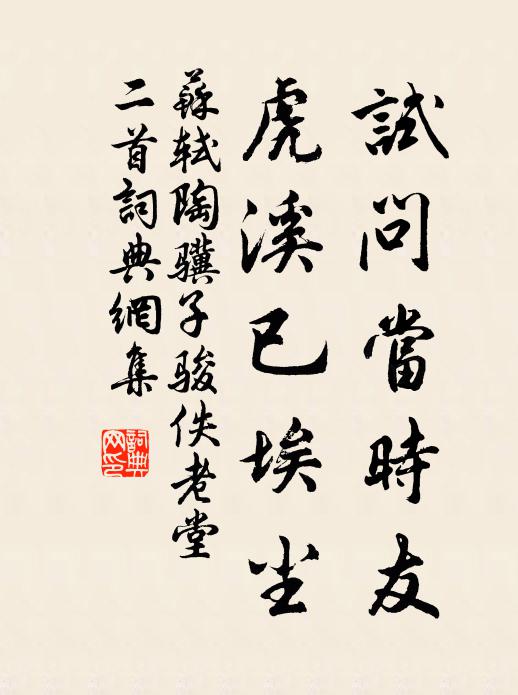 試問當時友
虎溪已埃尘
蘇軾陶骥子骏佚老堂
二首詞典網集
詞典
网印